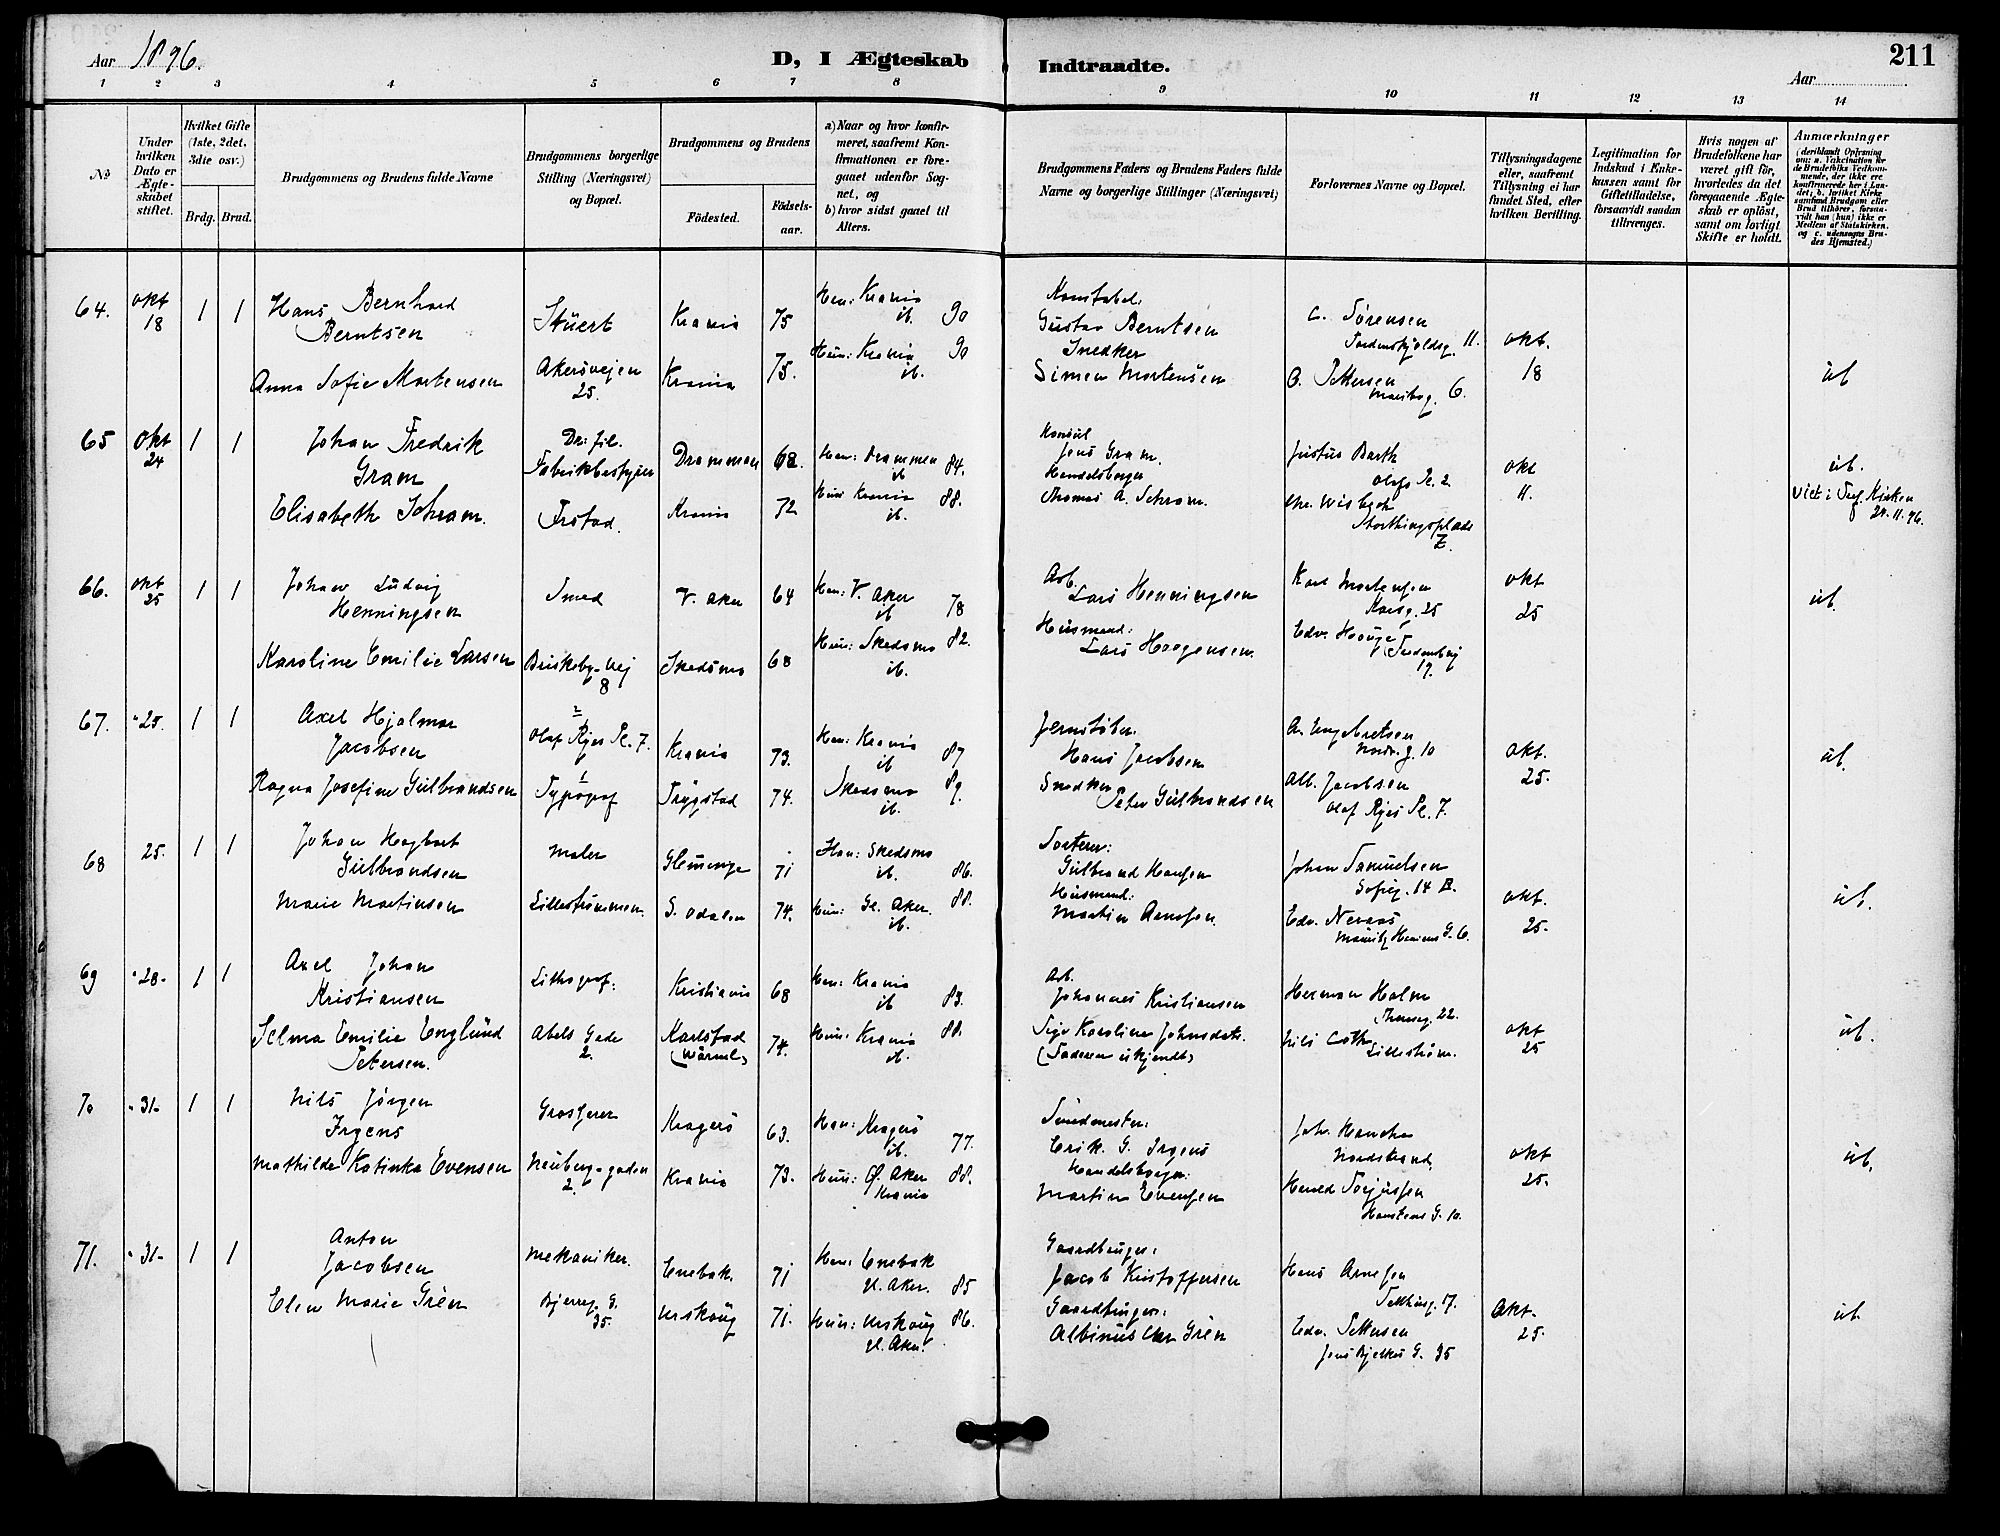 Aar 1896.
D, I Ægteskab Indtraadte.
211
Aar
1 2 3 4 5 6 7 8 9 10 11 12 13 14
No
Under hvilken Dato er Ægteskabet stiftet.
Hvilket Gifte (1ste, 2det, 3die osv.)
Brdg. Brud.
Brudgommens og Brudens fulde Navne
Brudgommens borgerlige Stilling (Næringsvei) og Bopæl.
Brudgommens og Brudens
Fødested.
Fødselsaar.
a) Naar og hvor konfirmeret, saafremt Konfirmationen er foregaaet udenfor Sognet, og
b) hvor sidst gaaet til Alters.
Brudgommens Faders og Brudens Faders fulde Navne og borgerlige Stillinger (Næringsvei)
Forlovernes Navne og Bopæl.
Tillysningsdagene eller, saafremt Tillysning ei har fundet Sted, efter hvilken Bevilling.
Legitimation for Indskud i Enkekassen samt for Giftetilladelse, forsaavidt saadan tiltrænges.
Hvis nogen af Brudefolkene har været gift før, hvorledes da det foregaaende Ægteskab er opløst, samt om lovligt Skifte er holdt.
Anmærkninger
(deriblandt Oplysning om: a. Vakcination for de Brudefolks Vedkommende, der ikke ere konfirmerede her i Landet; b. hvilket Kirkesamfund Brudgom eller Brud tilhører, forsaavidt han (hun) ikke er Medlem af Statskirken, og c. udensogns Brudes Hjemsted.)
64. Okt 18 1 1 Hans Bernhard Berntsen
Stuert
Krania 75
Han: Krania ib. 90
Konstabel:
Gustav Berntsen
C. Sørensen
Tordenskjoldsg. 11.
Okt. 18
Anna Sofie Mortensen
Akersvejen 25.
Krania 75.
Hun: Krania ib. 90
Snedker
Simen Mortensen
O. Pettersen
6.
ub
65 Okt 24 1 1 Johan Fredrik Gram
Dr: fil. Fabrikbestyrer
Drammen 62.
Han: Drammen ib 84.
Konsul
Jens Gram.
Justus Barth
Olafs Pl. 2
Okt 11.
ub.
Elisabeth Schram.
Krania 72
Hun: Krania ib. 88.
Handelsborger
Thomas A. Schram.
Chr. Wisbech
Storthingsplads 7.
Viet i Tref. Kirken 24.11.96.
66. Okt 25 1 1 Johan Ludvig Henningsen
Smed
V. Aker 64
Han: V. Aker ib 78
Arb.
Lars Henningsen
Karl Mortensen
25
Okt 25
ub.
Karoline Emilie Larsen
Briskeby-vej 8
Skedsmo 68
Hun: Skedsmo ib. 82.
Husmand:
Lars Haagensen.
Edv. Hauge
19.
67. " 25. 1 1 Axel Hjalmar Jacobsen
Olaf Ryes Pl. 7.
Krania 73.
Han: Krania ib 87
Jernstøber.
Hans Jacobsen
A. Engebretsen
Nordr. g. 10
Okt. 25.
ub.
Ragna Josefine Gulbrandsen
Typograf
Trygstad 74.
Skedsmo ib. 89.
Snedker
Peter Gulbrandsen
Alb. Jacobsen
Olaf Ryes Pl. 7.
68 25. 1 1 Johan Hagbart Gulbrandsen
Maler
Glemmige 71
Han: Skedsmo ib. 86.
Sorterer:
Gulbrand Hansen
Johan Samuelsen
Sofieg. 14 B.
Okt. 25.
ub.
Marie Martinsen
Lillestrømmen.
S. Odalen 74.
Hun: Gl. Aker. ib. 88.
Husmand:
Martin Arnesen.
Edv. Neraas
Mauritz Hansens G. 6.
69 " 28- 1 1 Axel Johan Kristiansen
Lithograf:
Kristiania 68
Han: Krania ib 83.
Arb.
Johannes Kristiansen
Herman Holm
22.
Okt 25
ub.
Selma Emilie Englund Petersen.
Abels Gade 2.
Karlstad (Wärml.) 74.
Hun: Krania ib. 88.
Pige Karoline Johnsdatr.
(Faderen ukjendt)
Nils Coth
Lillestrøm.
70 " 31- 1 1 Nils Jørgen Irgens
Grosserer
Kragerø 63.
Han: Kragerø ib. 77.
Tandmester:
Erik G. Irgens
Joh. Hancke
Nordstrand,
Okt 25.
ub.
Mathilde Katinka Evensen
Neuberg-gaden 2.
Krania 73.
Hun: Ø. Aker Krania 88.
Handelsborger:
Martin Evensen
Harald Torjusen
Hanstens G. 10.
71. " 31- 1 1 Anton Jacobsen
Mekaniker.
Enebak. 71
Han: Enebak gl. Aker. 85
Gaardbruger:
Jacob Kristoffersen
Hans Arnesen
Telthusg. 17.
Okt- 25.
ub.
Elen Marie Grën
Bjerreg. G. 35.
Urskoug 71.
Hun: Urskoug gl. Aker. 86.
Gaardbruger:
Albinus Chr Grën
Edv. Pettersen
Jens Bjelkes G. 35